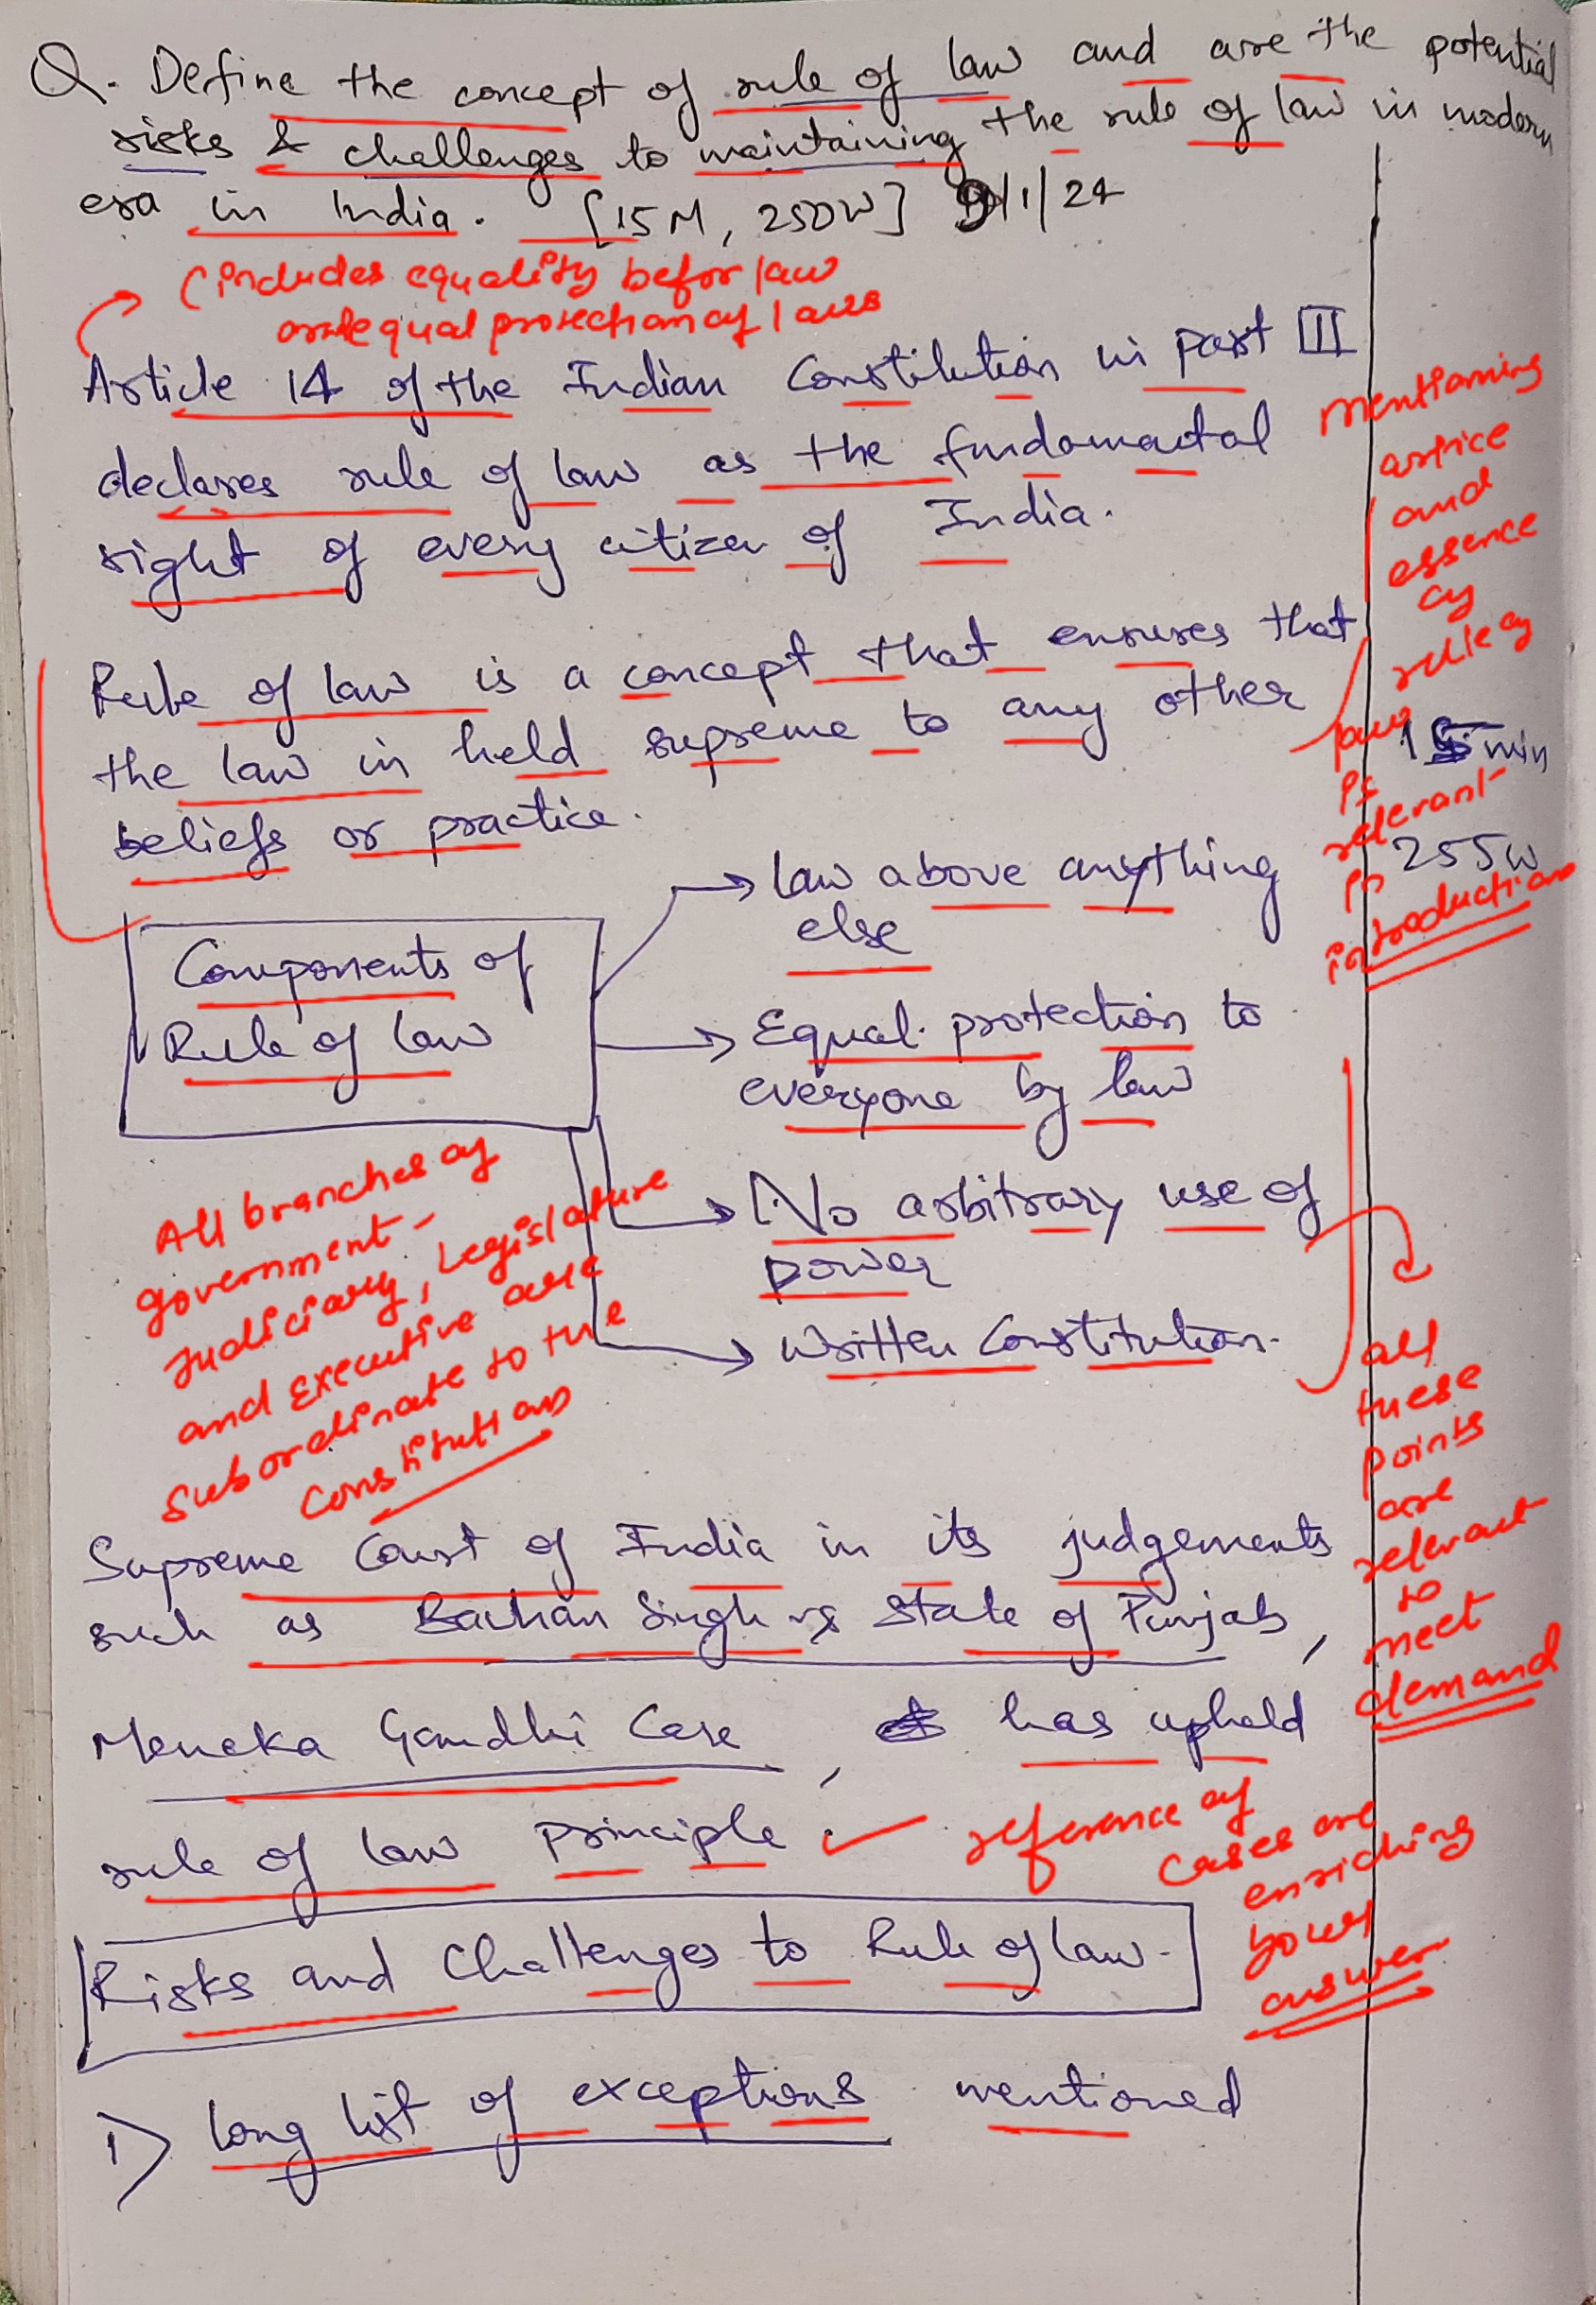 Q. Define the concept of rule of law and are the potential
risks & challenges to maintaining the rule of law in modern
era in India. [15M, 250W] 9/1/24
(includes equality befor law
and equal protection of laws
Article 14 of the Indian Constitution in part III
declares rule of law as the fundamental
right of every citizen of India.
mentioning
artice
and
essence
of
rule of
law
is
relevant
in
introduction
Rule of law is a concept that ensures that
the law in held supreme to any other
beliefs or practice.
15 min
255W
Components of
Rule of law
Law above anything
else
Equal protection to
everyone by law
No arbitrary use of
power
Written Constitution.
All branches of
government -
Judiciary, Legislature
and Executive are
subordinate to the
Constitution
all
these
points
are
relevant
to
meet
demand
Supreme Court of India in its judgements
such as Bachan Singh vs State of Punjab,
Meneka Gandhi Case, has upheld
rule of law principle.
reference of
cases are
enriching
your
answer
Risks and Challenges to Rule of law.
1) Long list of exceptions mentioned